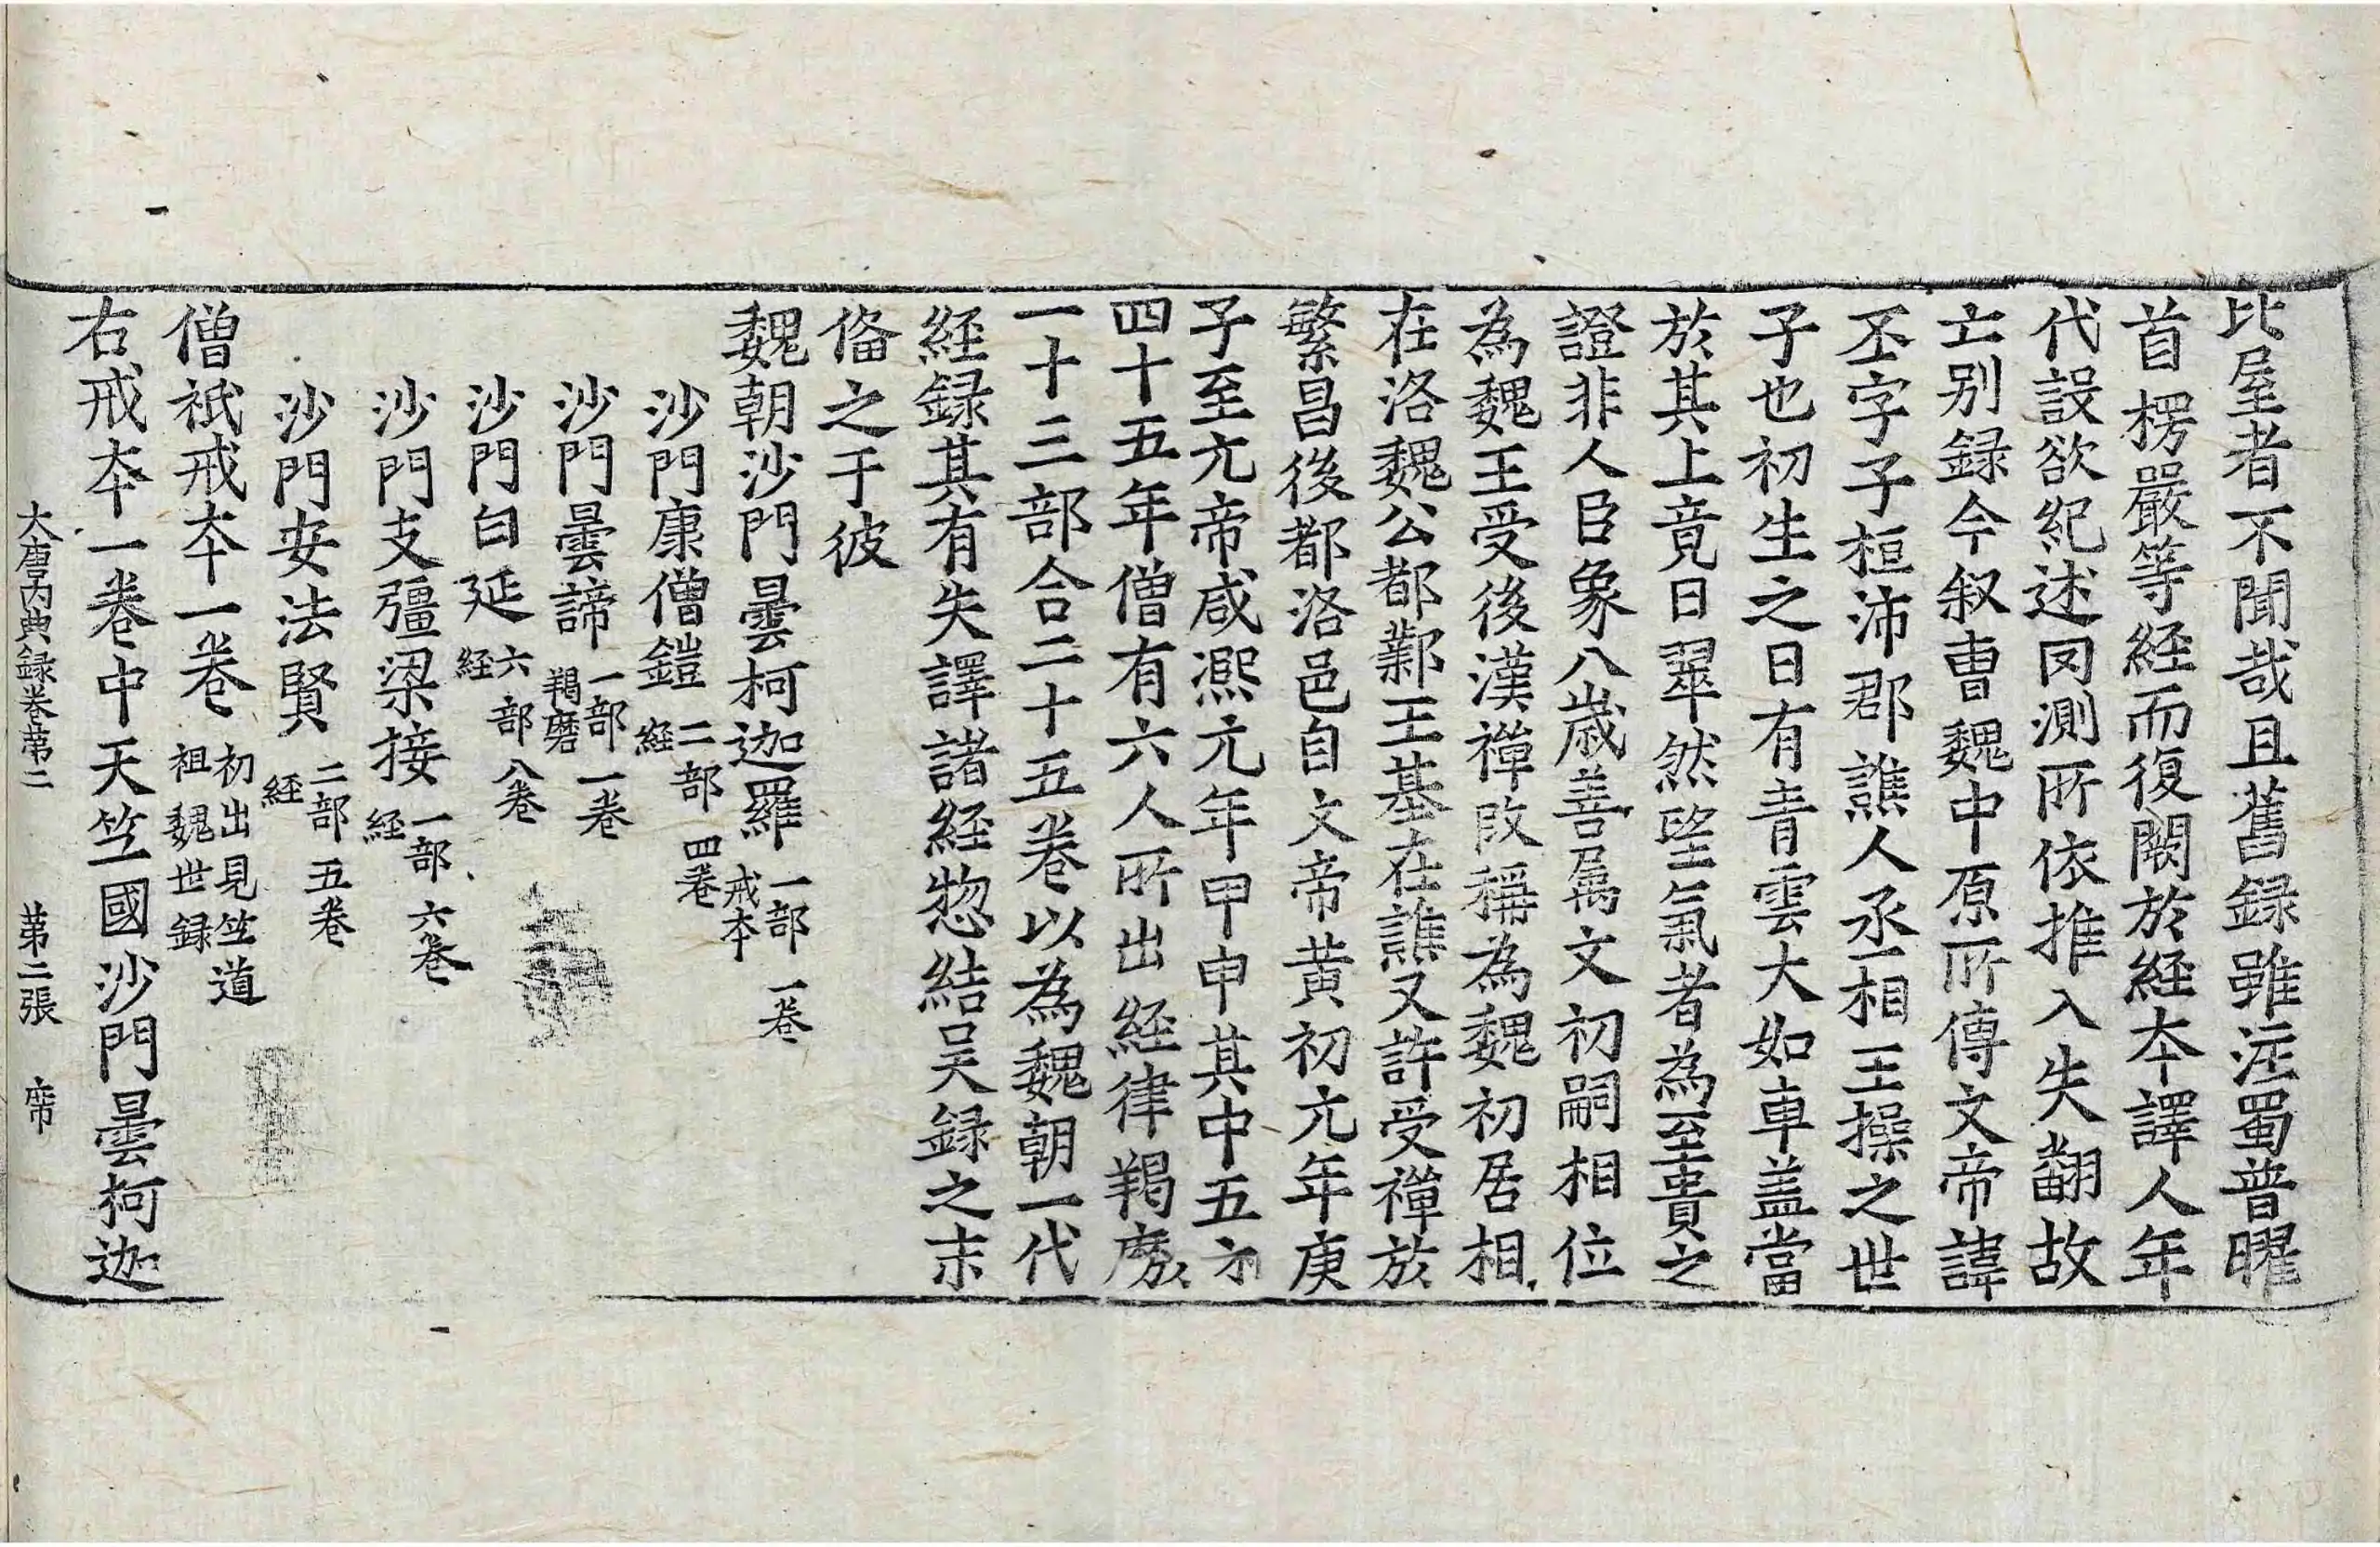 比屋者不聞哉且舊録雖注蜀普曜
首楞嚴等経而復闕於経本譯人年
代設欲紀述罔測所依推入失翻故
亡别録今叙曹魏中原所傳文帝諱
丕字子桓沛郡譙人丞相王操之世
子也初生之日有青雲大如車盖當
於其上竟日翠然望氣者為至貴之
證非人臣象八歳善属文初嗣相位
為魏王受後漢禅改稱為魏初居相
在洛魏公都鄴王基在譙又許受禅於
繁昌後都洛邑自文帝黄初元年庚
子至元帝咸凞元年甲申其中五帝
四十五年僧有六人所出経律羯磨
一十三部合二十五卷以為魏朝一代
経録其有失譯諸経惣結吴録之末
俻之于彼
魏朝沙門曇柯迦羅一部一卷戒本
沙門康僧鎧二部四卷経
沙門曇諦一部一卷羯磨
沙門白延六部八卷経
沙門支彊梁接一部六卷経
沙門安法賢二部五卷経
僧祇戒本一卷初出見竺道祖魏世録
右戒本一卷中天竺國沙門曇柯迦
大唐内典録卷第二 第二張 席